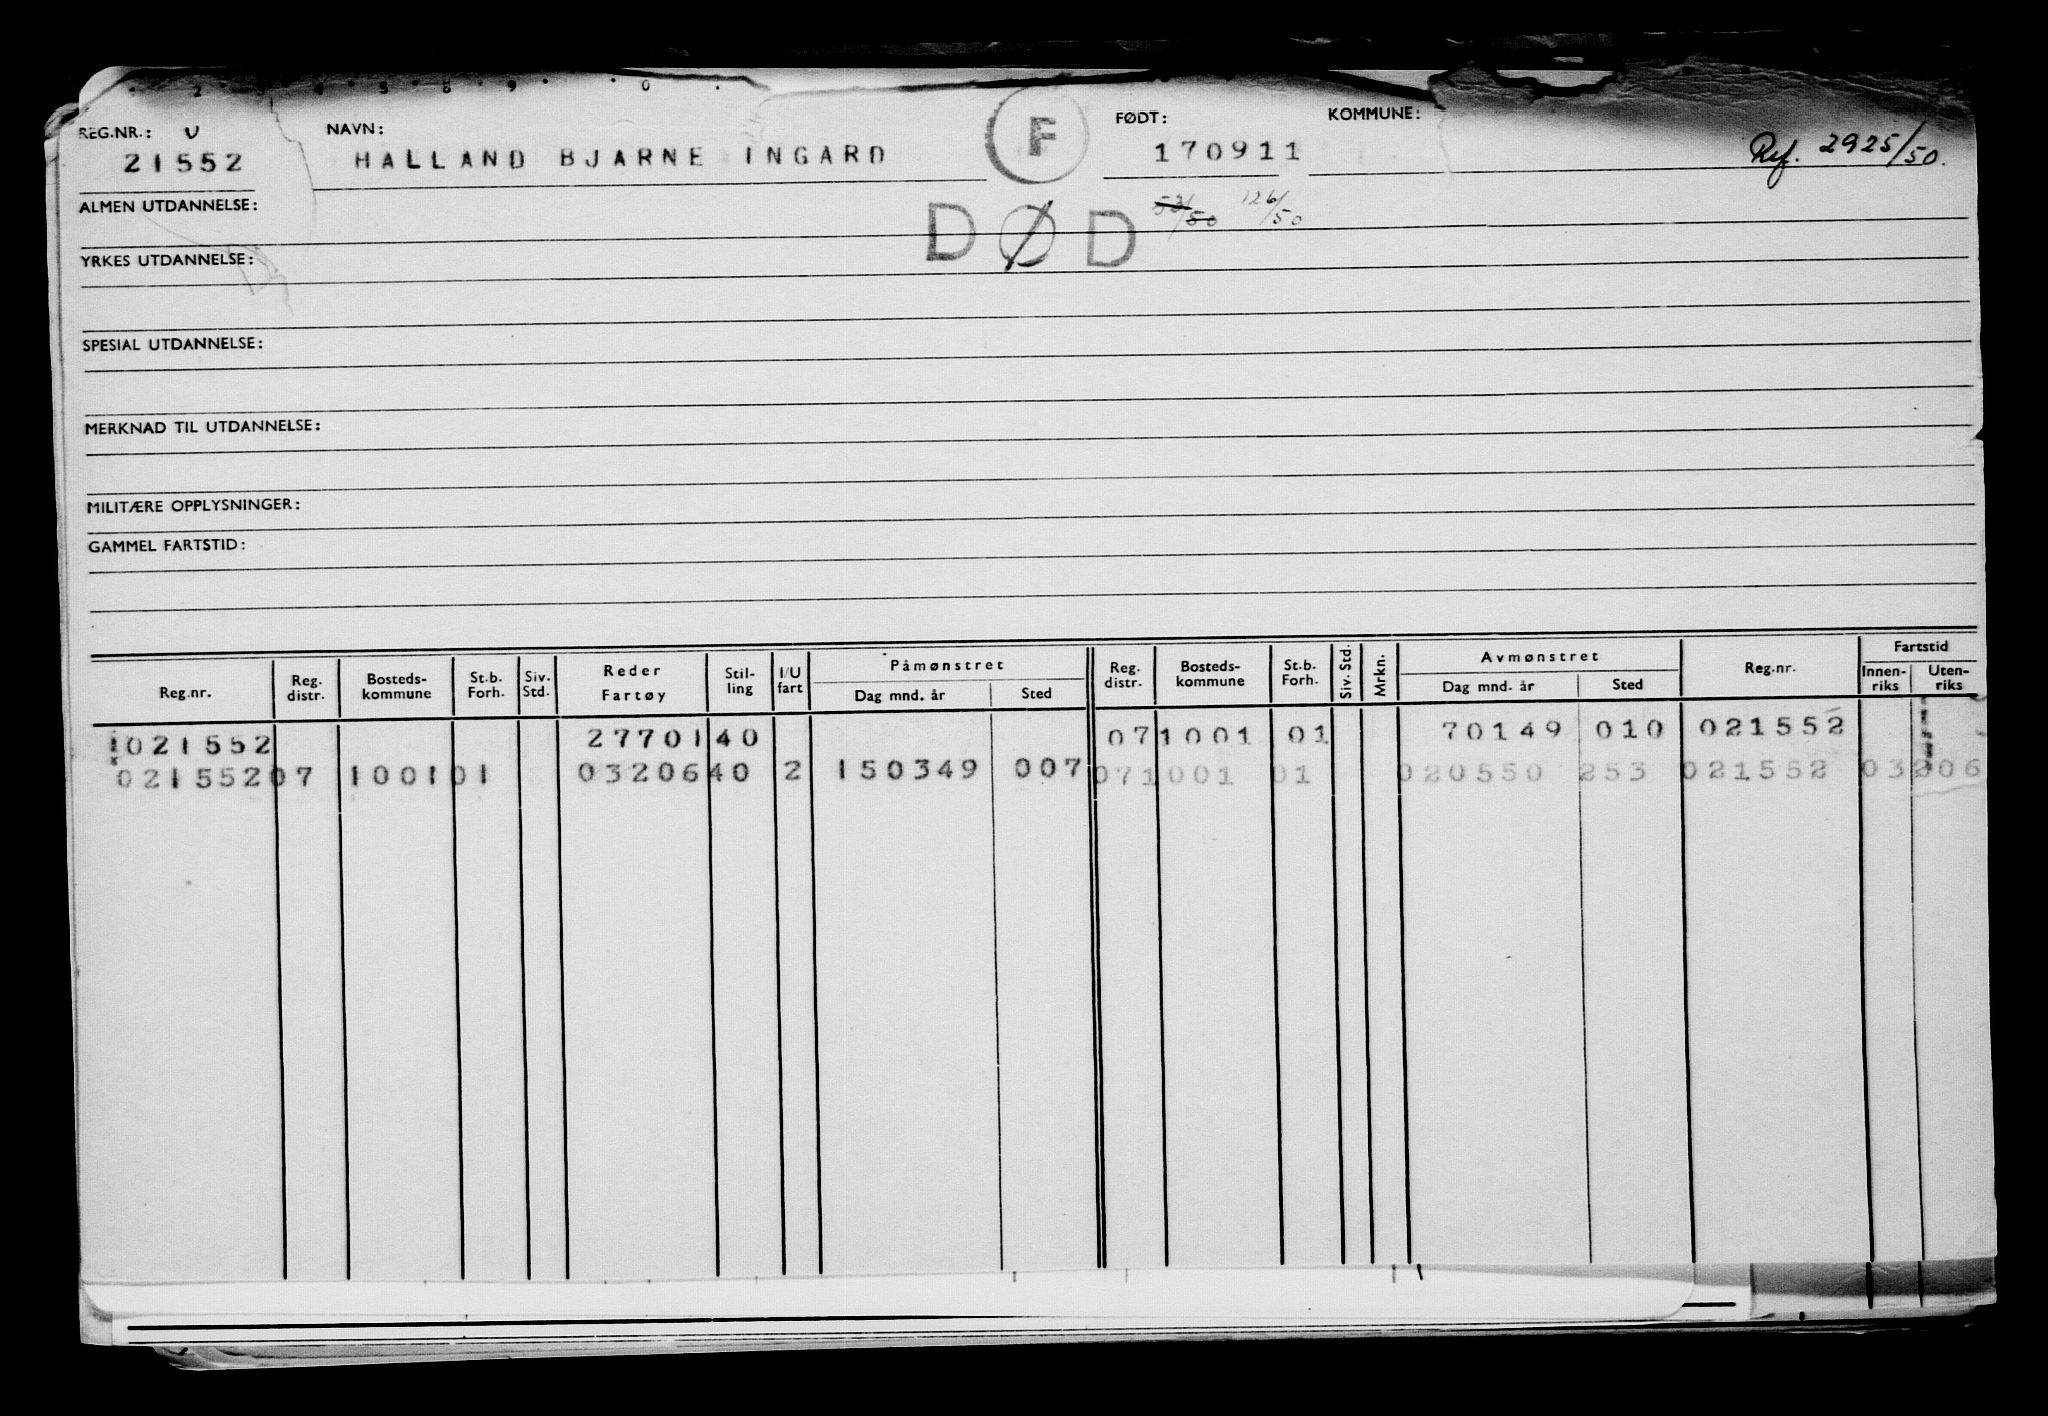 REG.NR.: U NAVN: F FØDT: KOMMUNE:
21552 HALLAND BJARNE INGARD 170911 Ref. 2925/50.
ALMEN UTDANNELSE: DØD 126/50
YRKES UTDANNELSE:
SPESIAL UTDANNELSE:
MERKNAD TIL UTDANNELSE:
MILITÆRE OPPLYSNINGER:
GAMMEL FARTSTID:
Reg.nr. Reg. distr. Bosteds-kommune St.b. Forh. Siv. Std. Reder Fartøy Stil-ling I/U fart Påmønstret Dag mnd. år Sted Reg. distr. Bosteds-kommune St.b. Forh. Siv. Std. Mrkn. Avmønstret Dag mnd. år Sted Reg.nr. Fartstid Innen-riks Uten-riks
021552 27701 40 07 1001 01 70149 010 021552
021552 07 1001 01 03206 40 2 150349 007 07 1001 01 020550 253 021552 03206